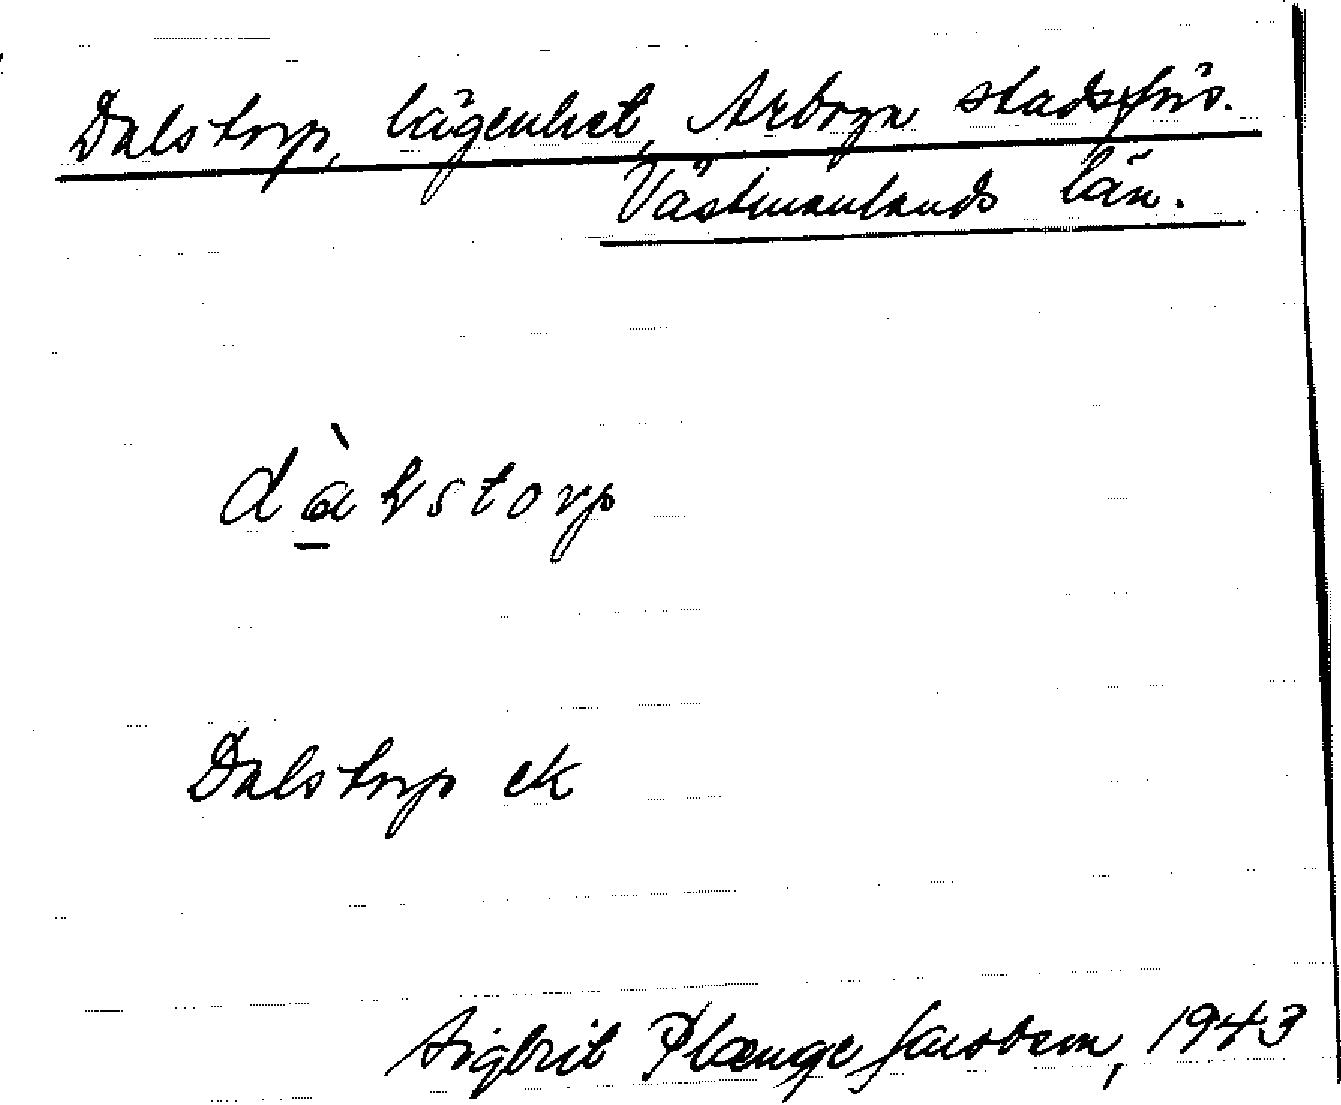 Dalstorp, lägenhet, Arboga stadsförs.
Västmanlands län.
dàlstorp
Dalstorp ek
Sigbrit Plænge Jacobson, 1943